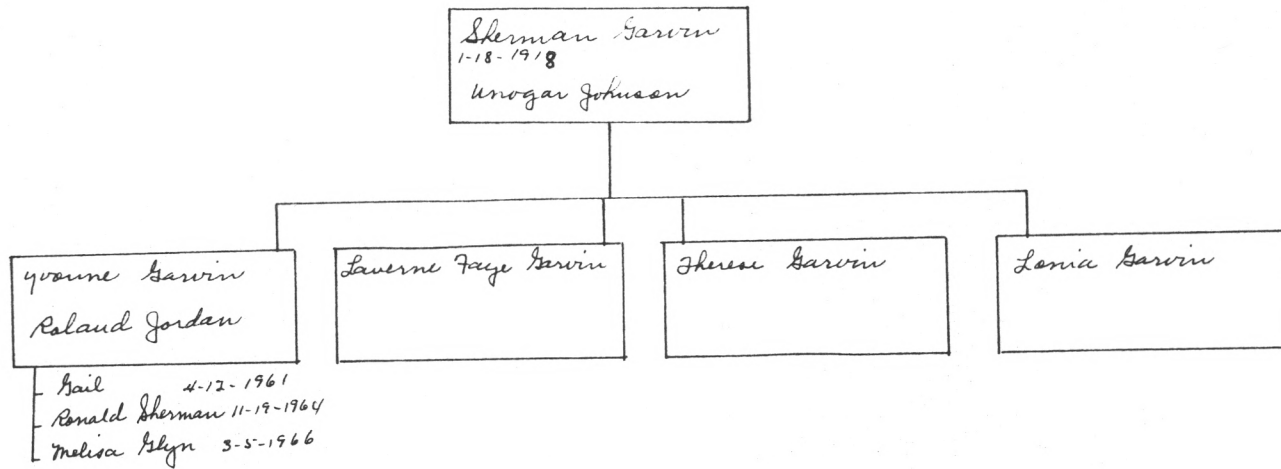 Sherman Garvin
1-18-1918
Unogar Johnson
Yvonne Garvin
Roland Jordan
Laverne Faye Garvin
Therese Garvin
Lonia Garvin
Gail 4-12-1961
Ronald Sherman 11-19-1964
Melisa Glyn 3-5-1966